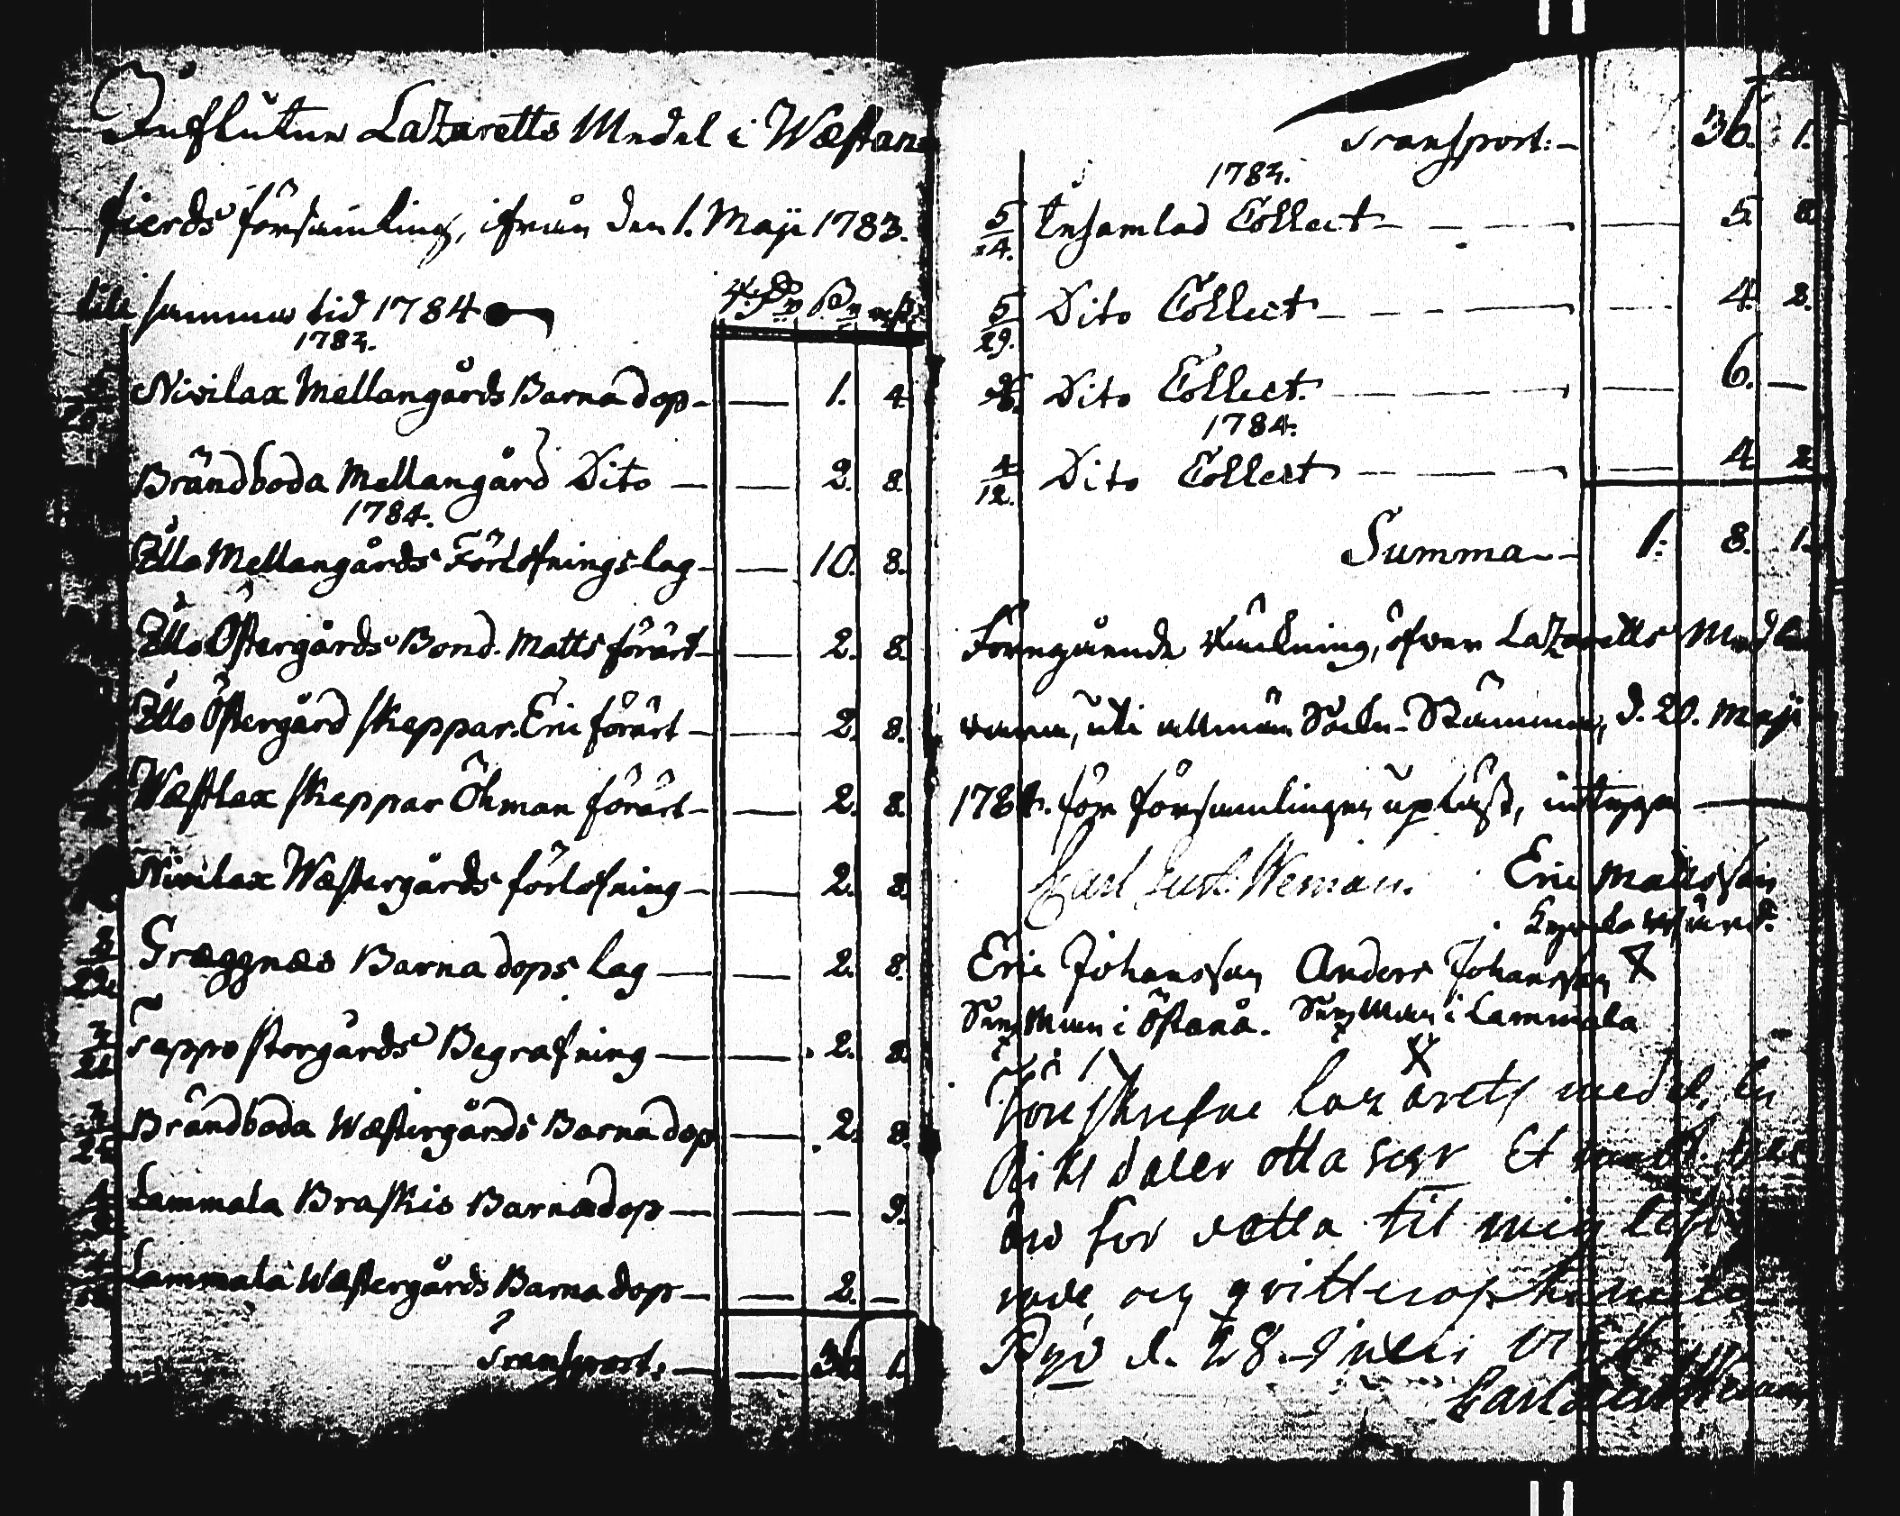 Influtne Lazaretts Medel i Wæstan-
fierds församling, ifrån den 1. Maji 1783.
till samma tid 1784
1783.
Nivilax Mellangårds Barnadop — — 1. 4.
Brändboda Mellangård Dito — — 2. 8.
1784.
Ölla Mellangårds Förlofningslag — — 10. 8.
Östergårds Bond. Matts förärt — — 2. 8.
Östergård skeppar Eric förärt — — 2. 8.
Wæstlax skeppar Öhman förärt — — 2. 8.
Nivilax Wæstergårds förlofning — — 2. 8.
Græggnæs Barnadops lag — — 2. 8.
Tappo storgårds Begrafning — — 2. 8.
Brändboda Wæstergårds Barnadop — 2. 8.
Lammala Braskis Barnadop — — — 9.
Lammala Wæstergårds Barnadop — — 2. —
Transport: — — 36. 1.
Transport: — 36. 1.
1783.
5/24. Insamlad Collect — — 5. 8.
5/29. Dito Collect — — 4. 2.
Dito Collect. — — 6. —
1784.
4/12. Dito Collect — — 4. 2.
Summa — 1: 8. 1.
Föregående räkning, öfwer Lazaretts Medlen
warit, uti allmän Sockn-Stämma, d. 20. Maji
1784. för församlingen upläst, intyga —
Carl Gust. Weman. Eric Mattsson
Kyrckowärd.
Eric Johansson Anders Johansson
Sexman i Östanå. Sexman i Lammala
Föreskrefne Lazarets medel, en
Riksdaler otta
äro for rætta til mig
och qvitteras
d. 28. Juni
Carl Gust Weman